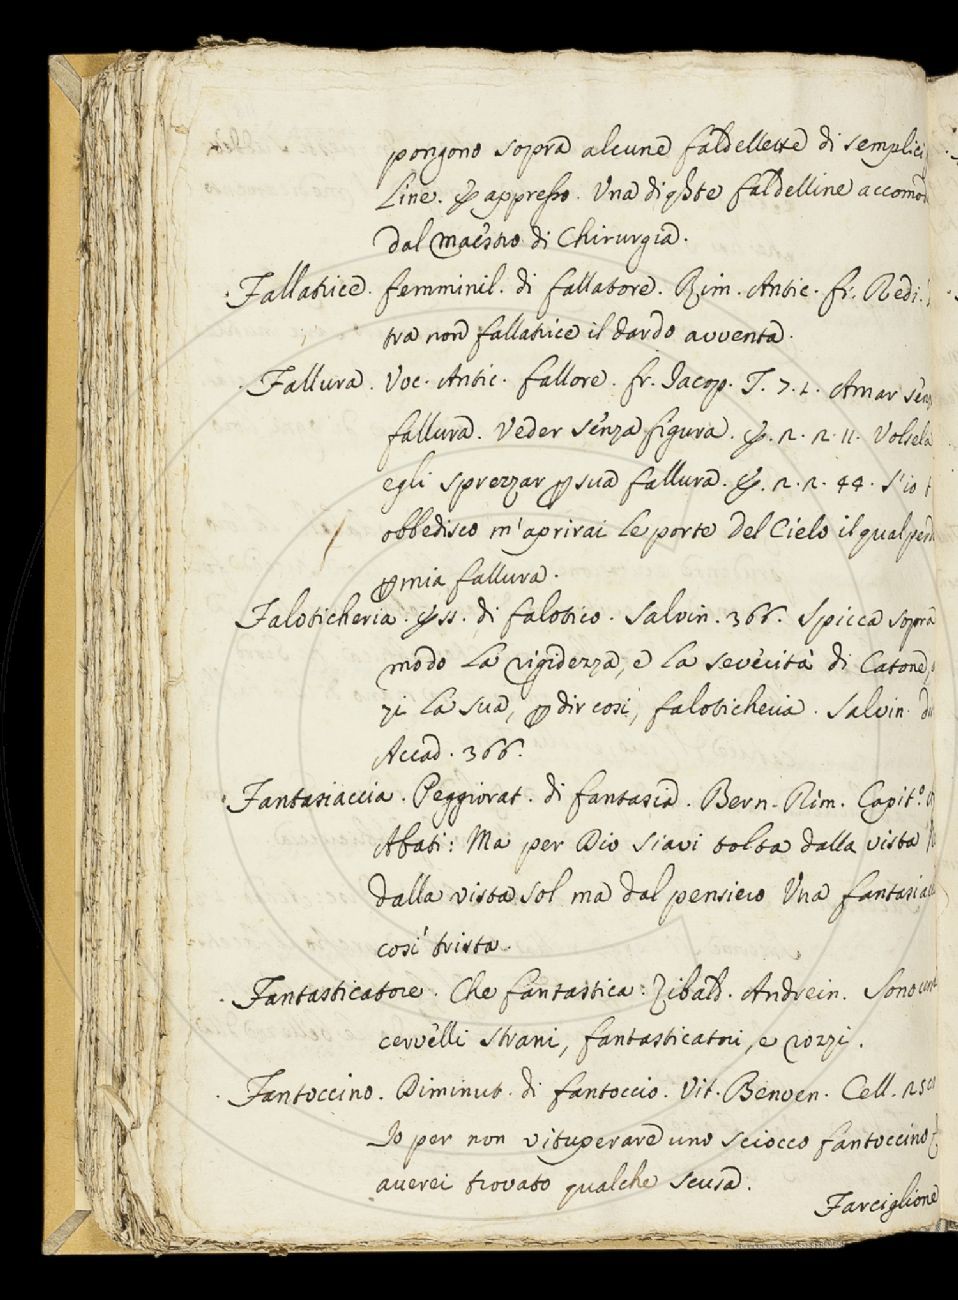 pongono sopra alcune faldellette di semplici
Line. & appresso. Una di qste faldelline accomod
dal maestro di Chirurgia.
Fallatrice. femminil. di fallatore. Rim. Antic. fr. Redi.
tra non fallatrice il dardo avventa.
Fallura. Voc. Antic. fallore. fr. Jacop. T. 7. 2. Amar senz
fallura. Veder senza figura. &. 2. 2. 11. Volsela
egli sprezzar p sua fallura. &. 2. 2. 44. S'io t
obbedisco m'aprirai le porte del Cielo il qual perd
p mia fallura.
Faloticheria. Ass. di falotico. Salvin. 366. Spicca sopra
modo la rigidezza, e la severità di Catone,
zi la sua, p dir così, faloticheria. Salvin. di
Accad. 366.
Fantasiaccia. Peggiorat. di fantasia. Bern. Rim. Capit.o
Abati: Ma per Dio siavi tolta dalla vista
dalla vista sol ma dal pensiero Una fantasia
così trista.
Fantasticatore. Che fantastica: Zibald. Andrein. Sono
cervelli strani, fantasticatori, e rozzi.
Fantoccino. Diminut. di fantoccio. Vit. Benven. Cell.
Io per non vituperare uno sciocco fantoccino
averei trovato qualche scusa.
Farciglione